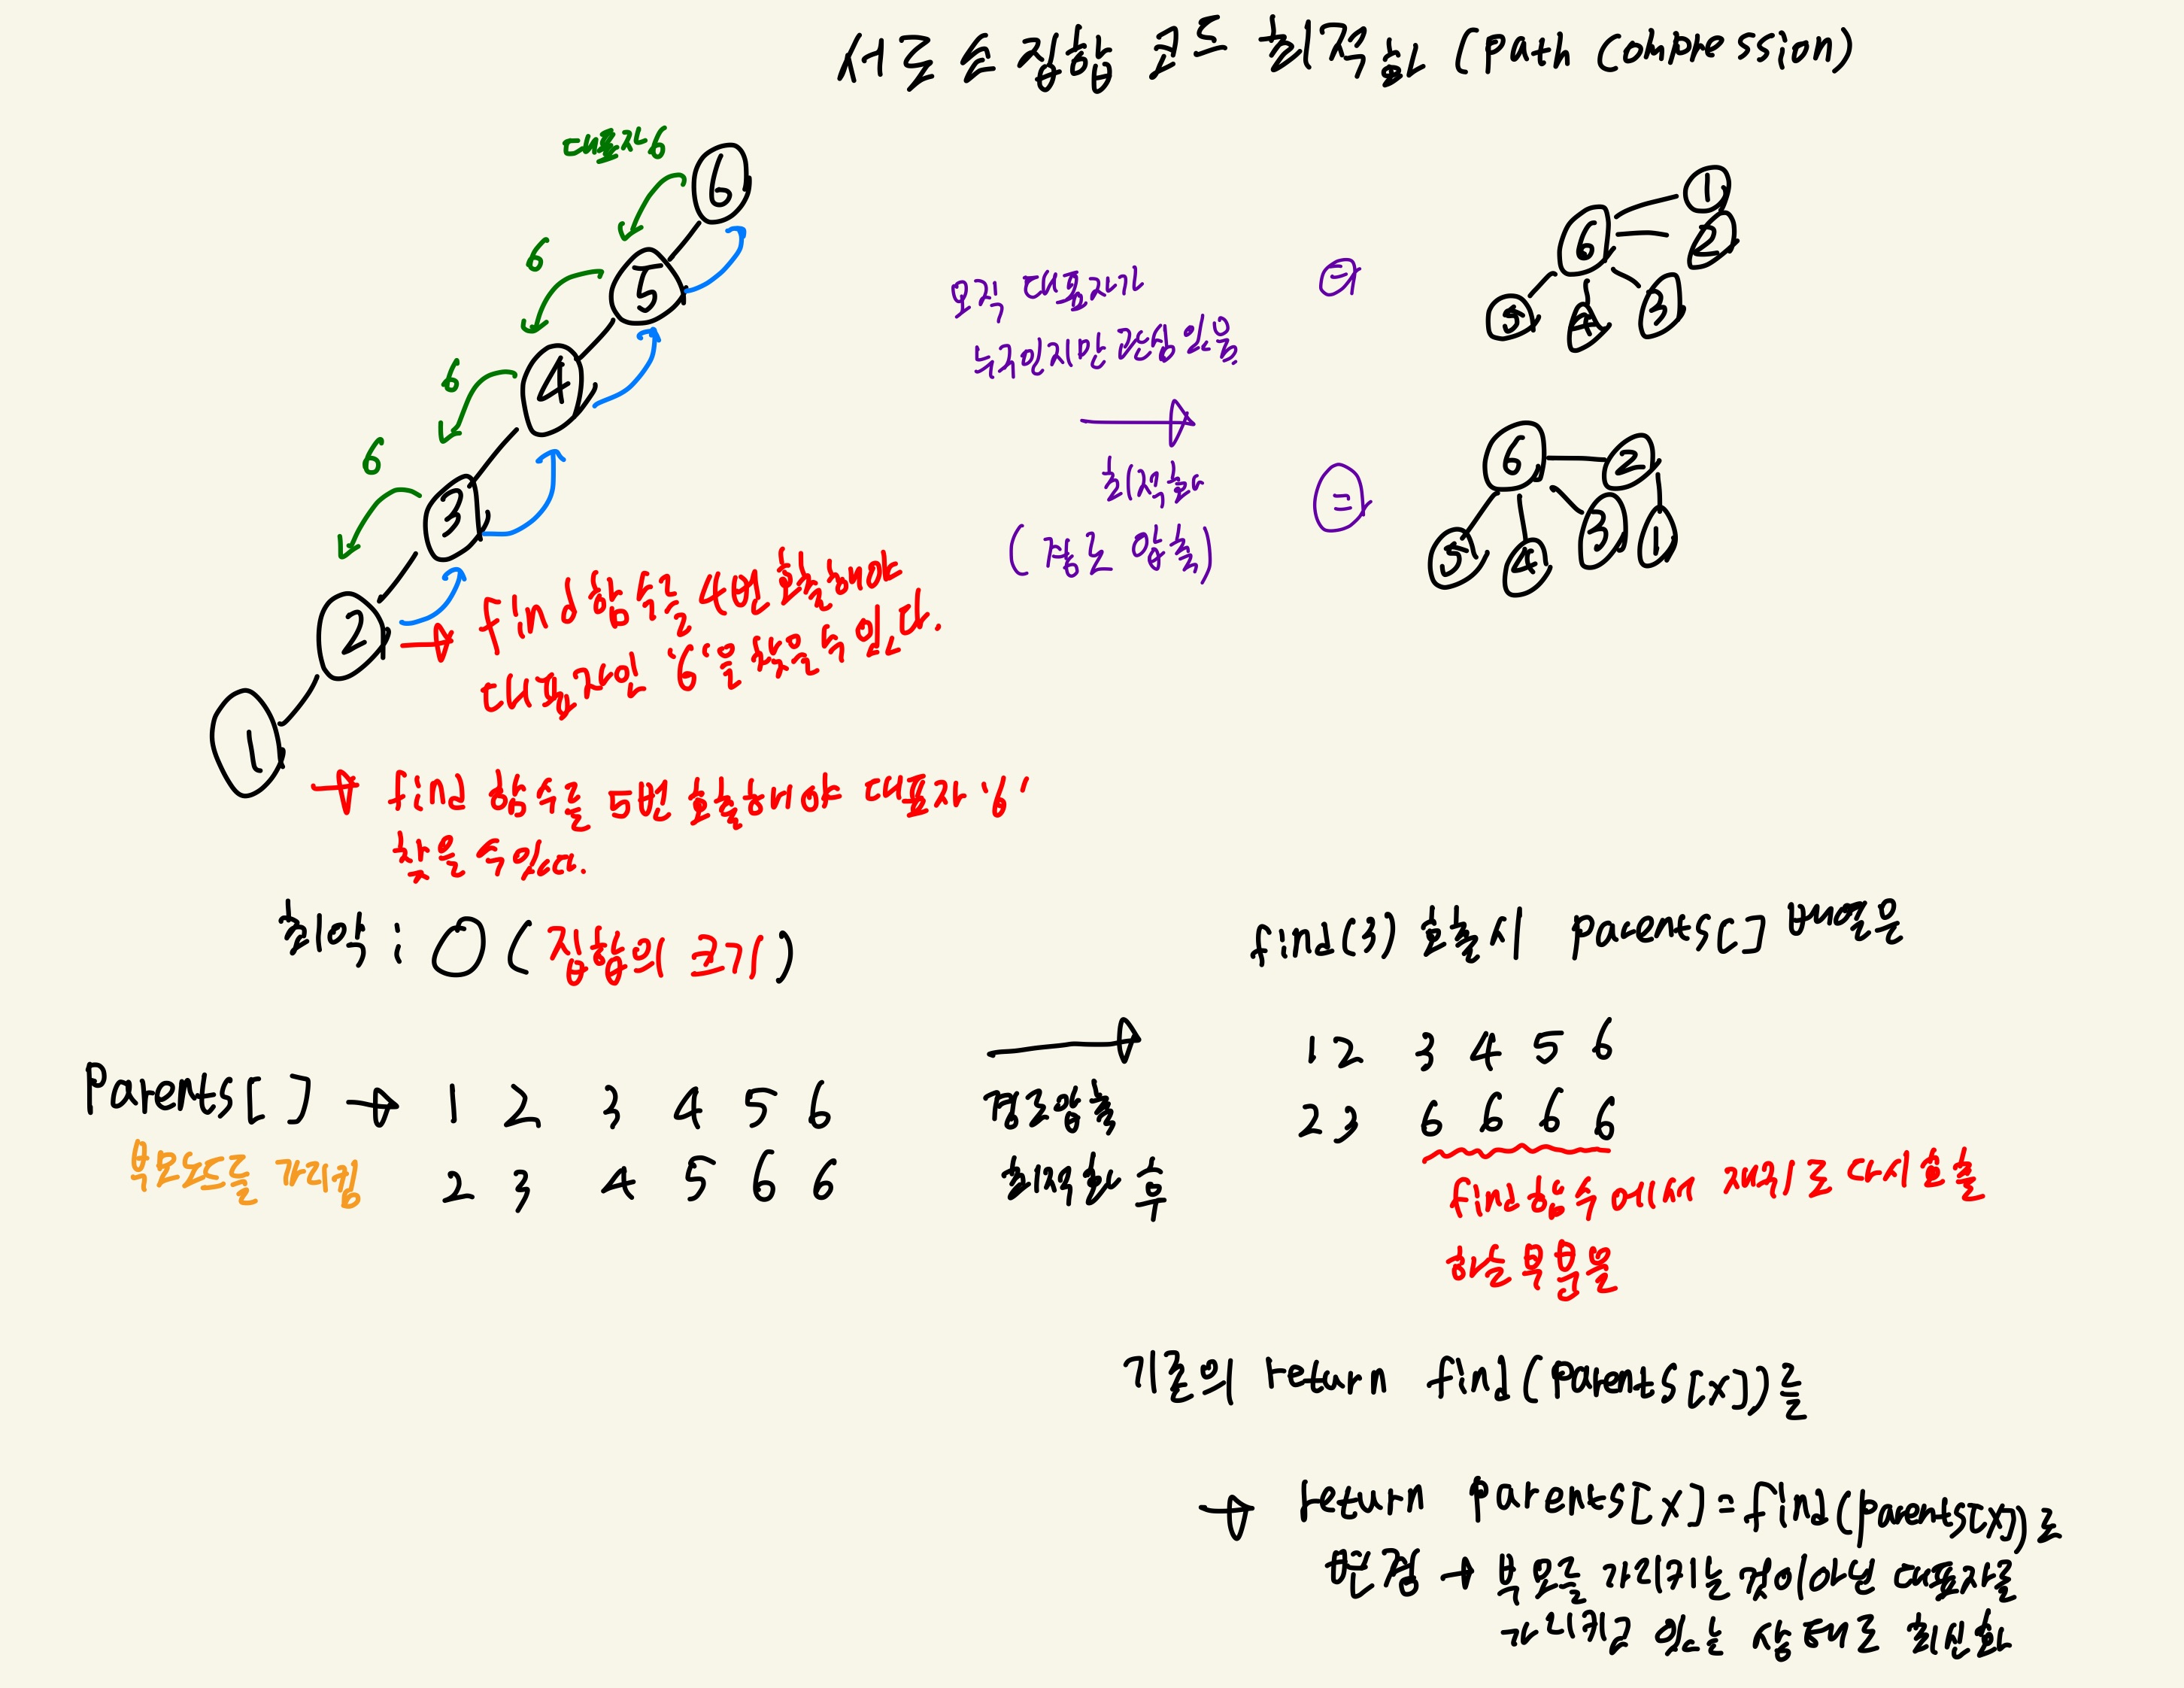 서로소 집합 코드 최적화 (Path Compression)
대표자 6
6
6
6
6
5
4
3
2
1
find 함수를 4번 호출해야
대표자인 '6'을 찾을 수 있다.
find 함수를 5번 호출해야 대표자 '6'
찾을 수 있다.
오직 대표자가
누구인지만 관심 있음
최적화
(경로 압축)
=
1
6
2
5
4
3
=
6
2
5
4
3
1
최악 : O (집합의 크기)
Parents[ ] → 1 2 3 4 5 6
부모노드를 가리킴
2 3 4 5 6 6
경로압축
최적화 후
find(3) 호출시 Parents[] 배열은
1 2 3 4 5 6
2 3 6 6 6 6
find함수에서 재귀로 다시 호출
하는 부분을
기존의 return find(Parents[x])를
→ return parents[x]=find(parents[x])로
변경 → 부모를 가리키는 것이 아닌 대표자를
가리키고 있는 상태로 최신화